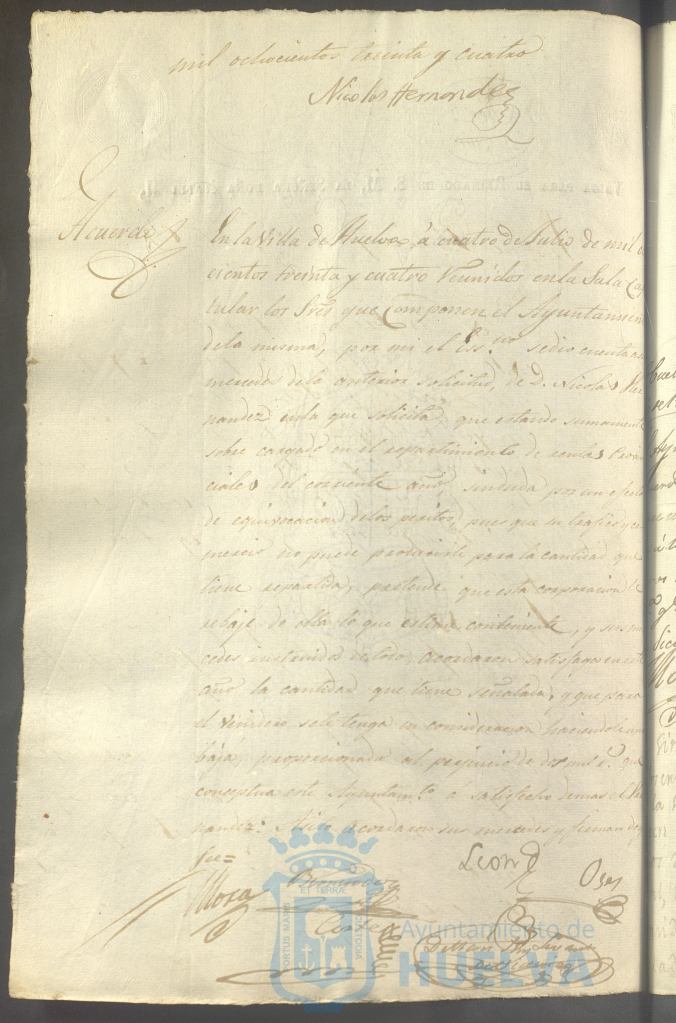 mil ochocientos treinta y cuatro
Nicolas Hernandez
Acuerdo
En la Villa de Huelva, á cuatro de Julio de mil
cientos treinta y cuatro reunidos en la Sala Ca
tular los Sres que componen el Ayuntamien
de la misma, por mi el Ess.no se dio cuenta
de la anterior solicitud, de D. Nicolas Her
nandez en la que solicita, que estando sumament
sobre cargado en el repartimiento de rentas Provin
ciales del corriente año, sin duda por un efecto
de equivocacion de los peritos, pues que su trafico y co
mercio no puede producirle para la cantidad que
tiene repartida, pretende que esta corporacion le
rebaje de ella lo que estime conveniente, y sus mer
cedes instruidos de todo, acordaron satisfaga en este
año la cantidad que tiene señalada, y que para
el venidero se le tenga en consideracion haciendole una
baja, proporcionada al perjuicio de dos mil r.s que
conceptua este Ayuntam.to á satisfecho demas el Her
nandez: Asi lo acordaron sus mercedes y firman doy
fee=
Leon
Mora
Cortes
PORTUS MARIS ET TERRÆ CUSTODIA
Ayuntamiento de
HUELVA